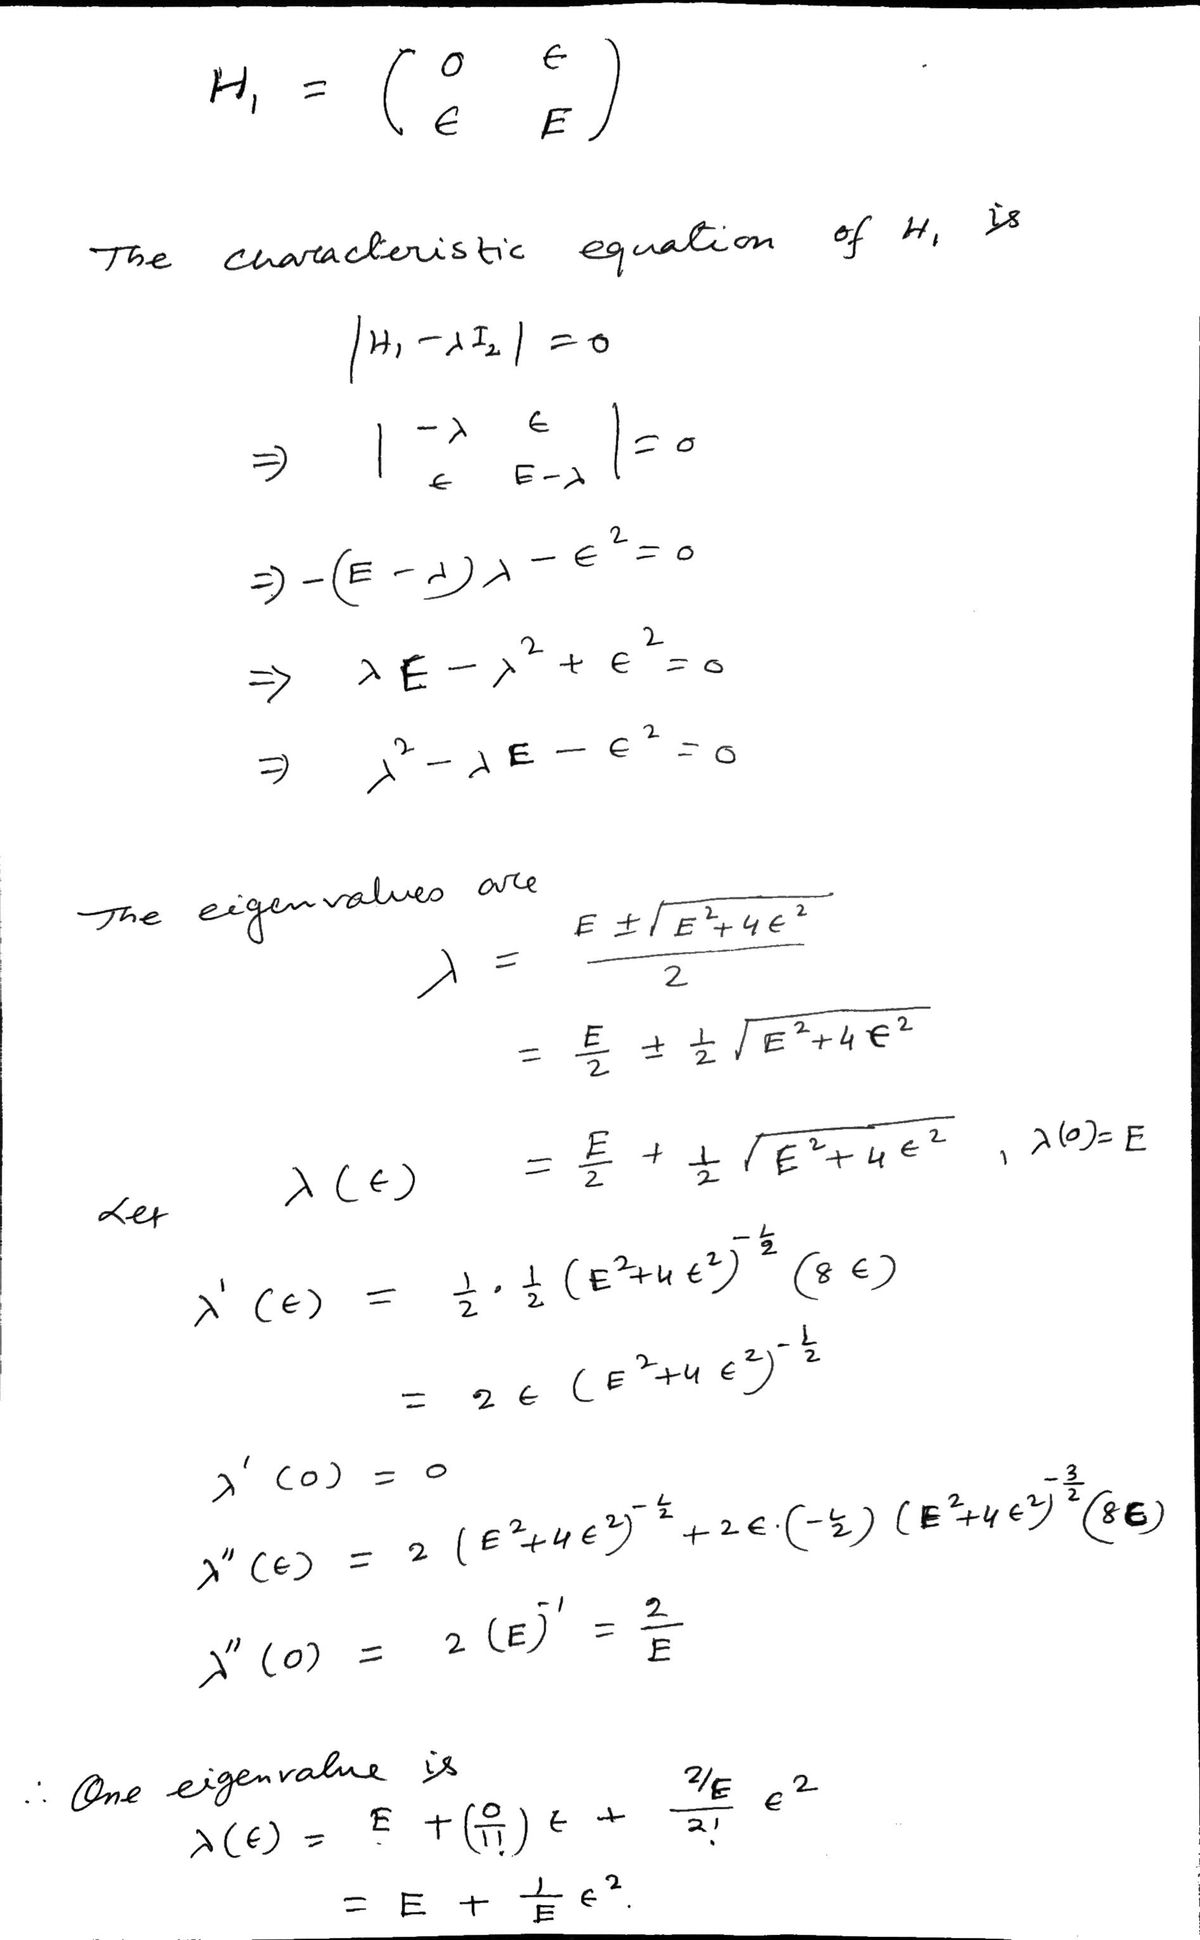 H₁ = ( 0 ϵ
ϵ E )
The characteristic equation of H₁ is
|H₁ - λI₂| = 0
⇒ | -λ ϵ
ϵ E-λ | = 0
⇒ -(E - λ)λ - ϵ² = 0
⇒ λE - λ² + ϵ² = 0
⇒ λ² - λE - ϵ² = 0
The eigenvalues are
λ = (E ± √(E² + 4ϵ²))/2
= E/2 ± 1/2 √(E² + 4ϵ²)
Let λ(ϵ) = E/2 + 1/2 √(E² + 4ϵ²) , λ(0) = E
λ'(ϵ) = 1/2 · 1/2 (E² + 4ϵ²)^(-1/2) (8ϵ)
= 2ϵ (E² + 4ϵ²)^(-1/2)
λ'(0) = 0
λ''(ϵ) = 2 (E² + 4ϵ²)^(-1/2) + 2ϵ·(-1/2) (E² + 4ϵ²)^(-3/2) (8ϵ)
λ''(0) = 2 (E)^(-1) = 2/E
∴ One eigenvalue is
λ(ϵ) = E + (0/1!) ϵ + (2/E)/2! ϵ²
= E + 1/E ϵ².